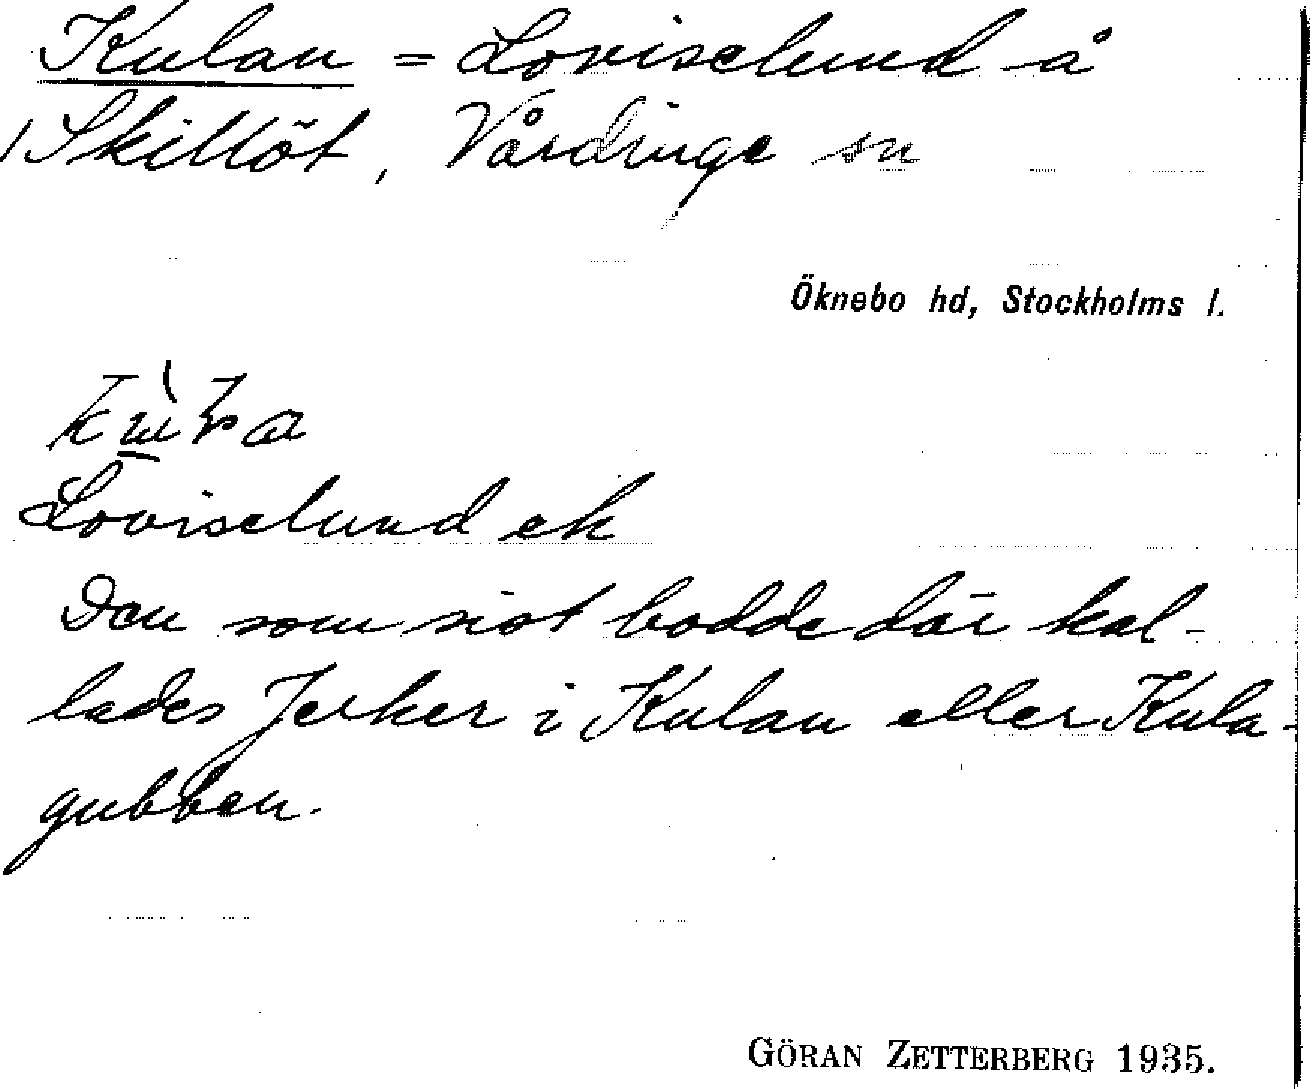 Kulan = Loviselund å
Skillöt, Vårdinge sn
Öknebo hd, Stockholms l.
Loviselund ek
Den som sist bodde där kal-
lades Jerker i Kulan eller Kula-
gubben.
GÖRAN ZETTERBERG 1935.